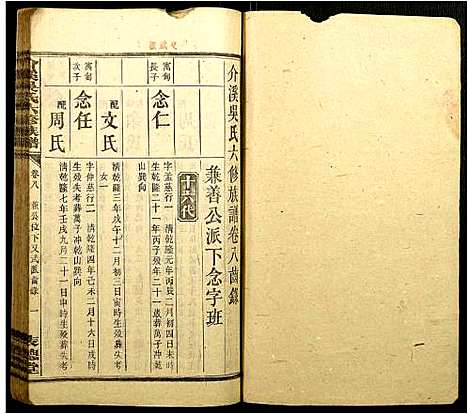 介溪吳氏六修族譜卷八齒錄
兼善公派下念字班
十六代
寓甸長子
念仁
字蓋慈行一清乾隆元年丙辰二月初四日未時
生乾隆二十一年丙子歿年二十一歲葬萬子冲
山巽向
配
文氏
清乾隆三年戊午十二月初三日寅時生歿葬失考
女一
寓甸次子
念任
字仲慈行二清乾隆四年己未二月十六日戌時
生歿失考葬萬子冲乾山巽向
配
周氏
清乾隆七年壬戌九月二十一日申時生歿葬失考
介溪吳氏六修族譜
卷八
兼長位下又式派齒錄
一